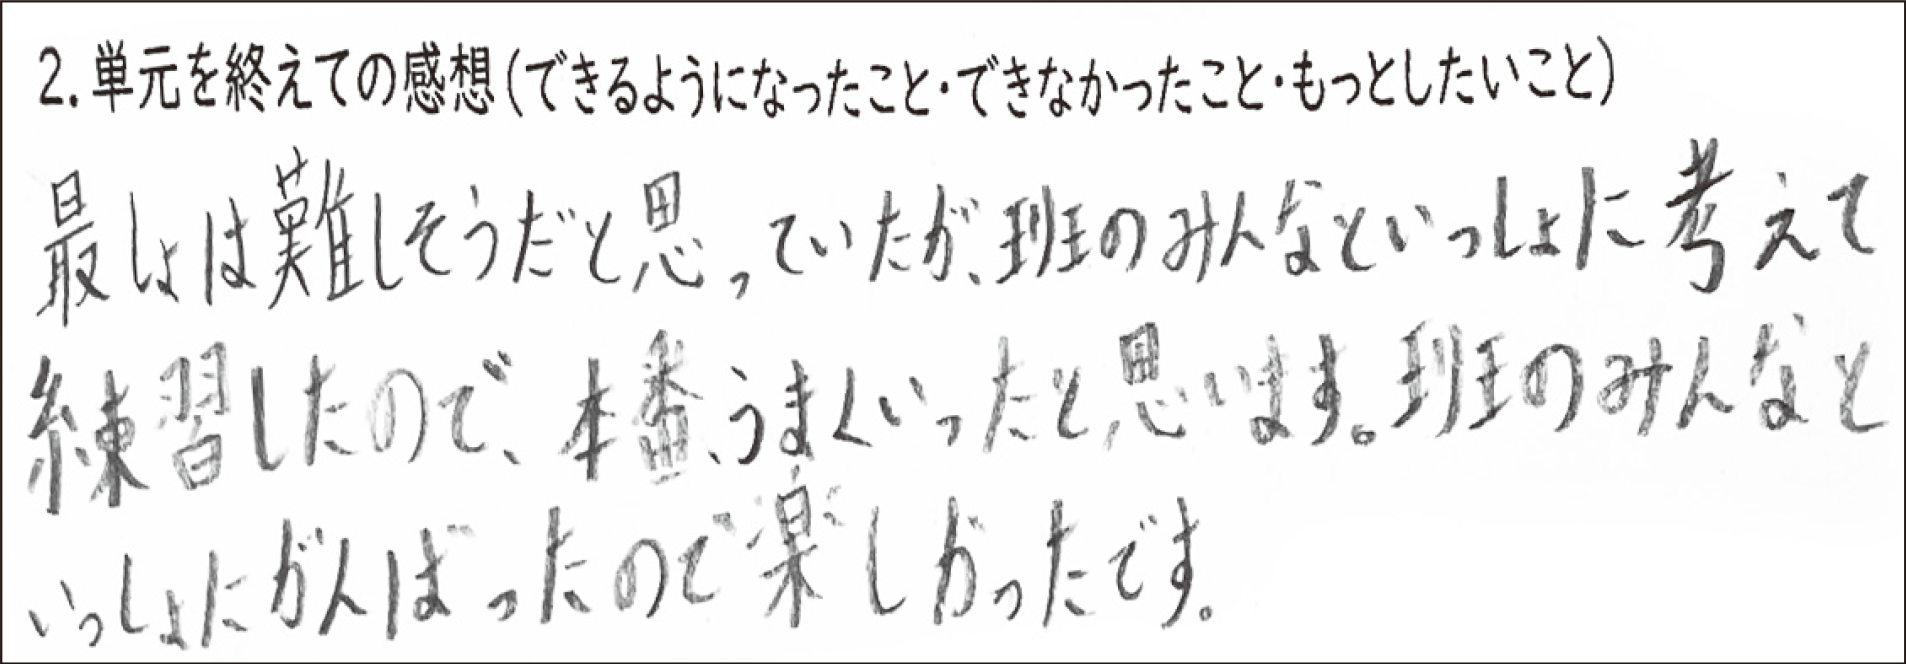 2.単元を終えての感想(できるようになったこと・できなかったこと・もっとしたいこと)
最しょは難しそうだと思っていたが、班のみんなといっしょに考えて
練習したので、本番、うまくいったと思います。班のみんなと
いっしょにがんばったので楽しかったです。